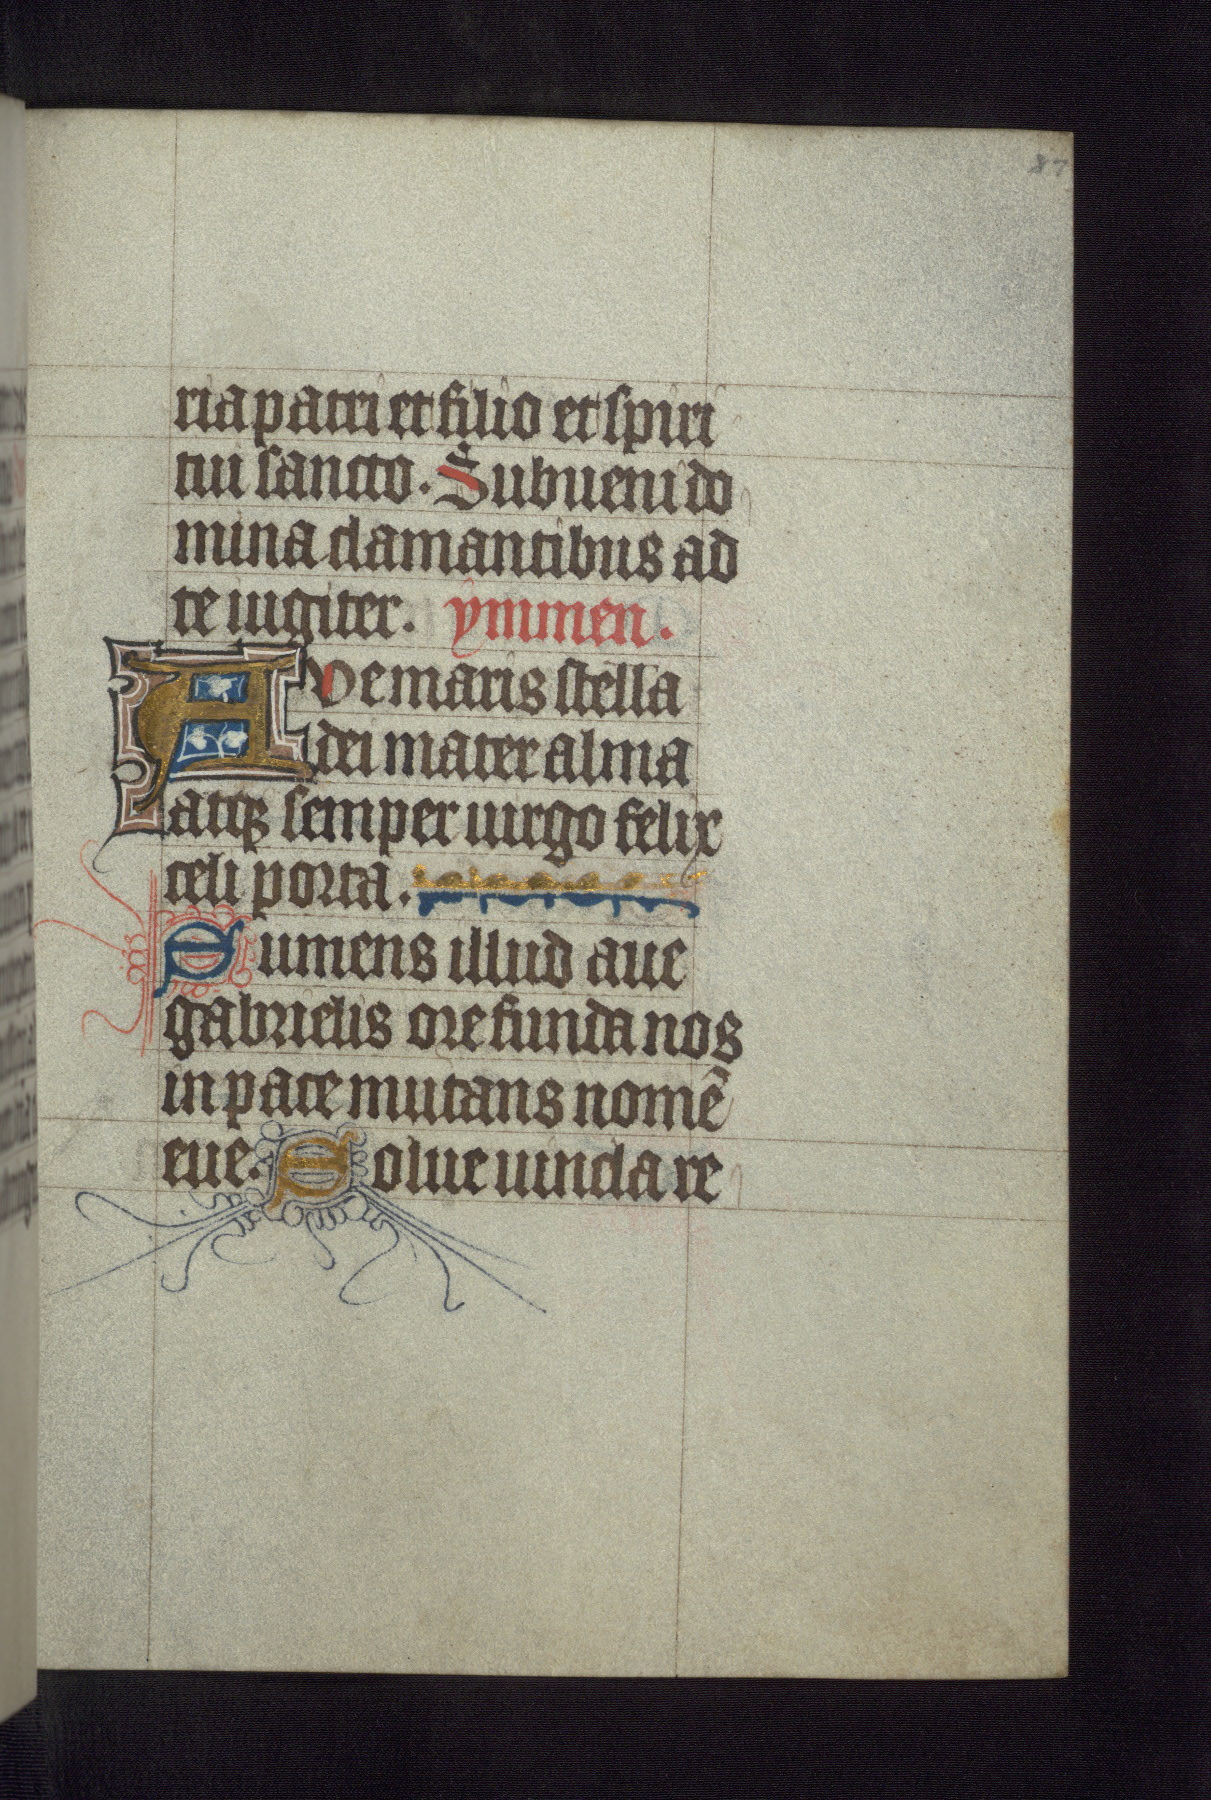 87
ria patri et filio et spiri
tui sancto. Subueni do
mina clamantibus ad
te iugiter. ymmen.
Aue maris stella
dei mater alma
atqꝫ semper uirgo felix
celi porta.
Sumens illud aue
gabrielis ore funda nos
in pace mutans nomē
eue. Solue uincla re